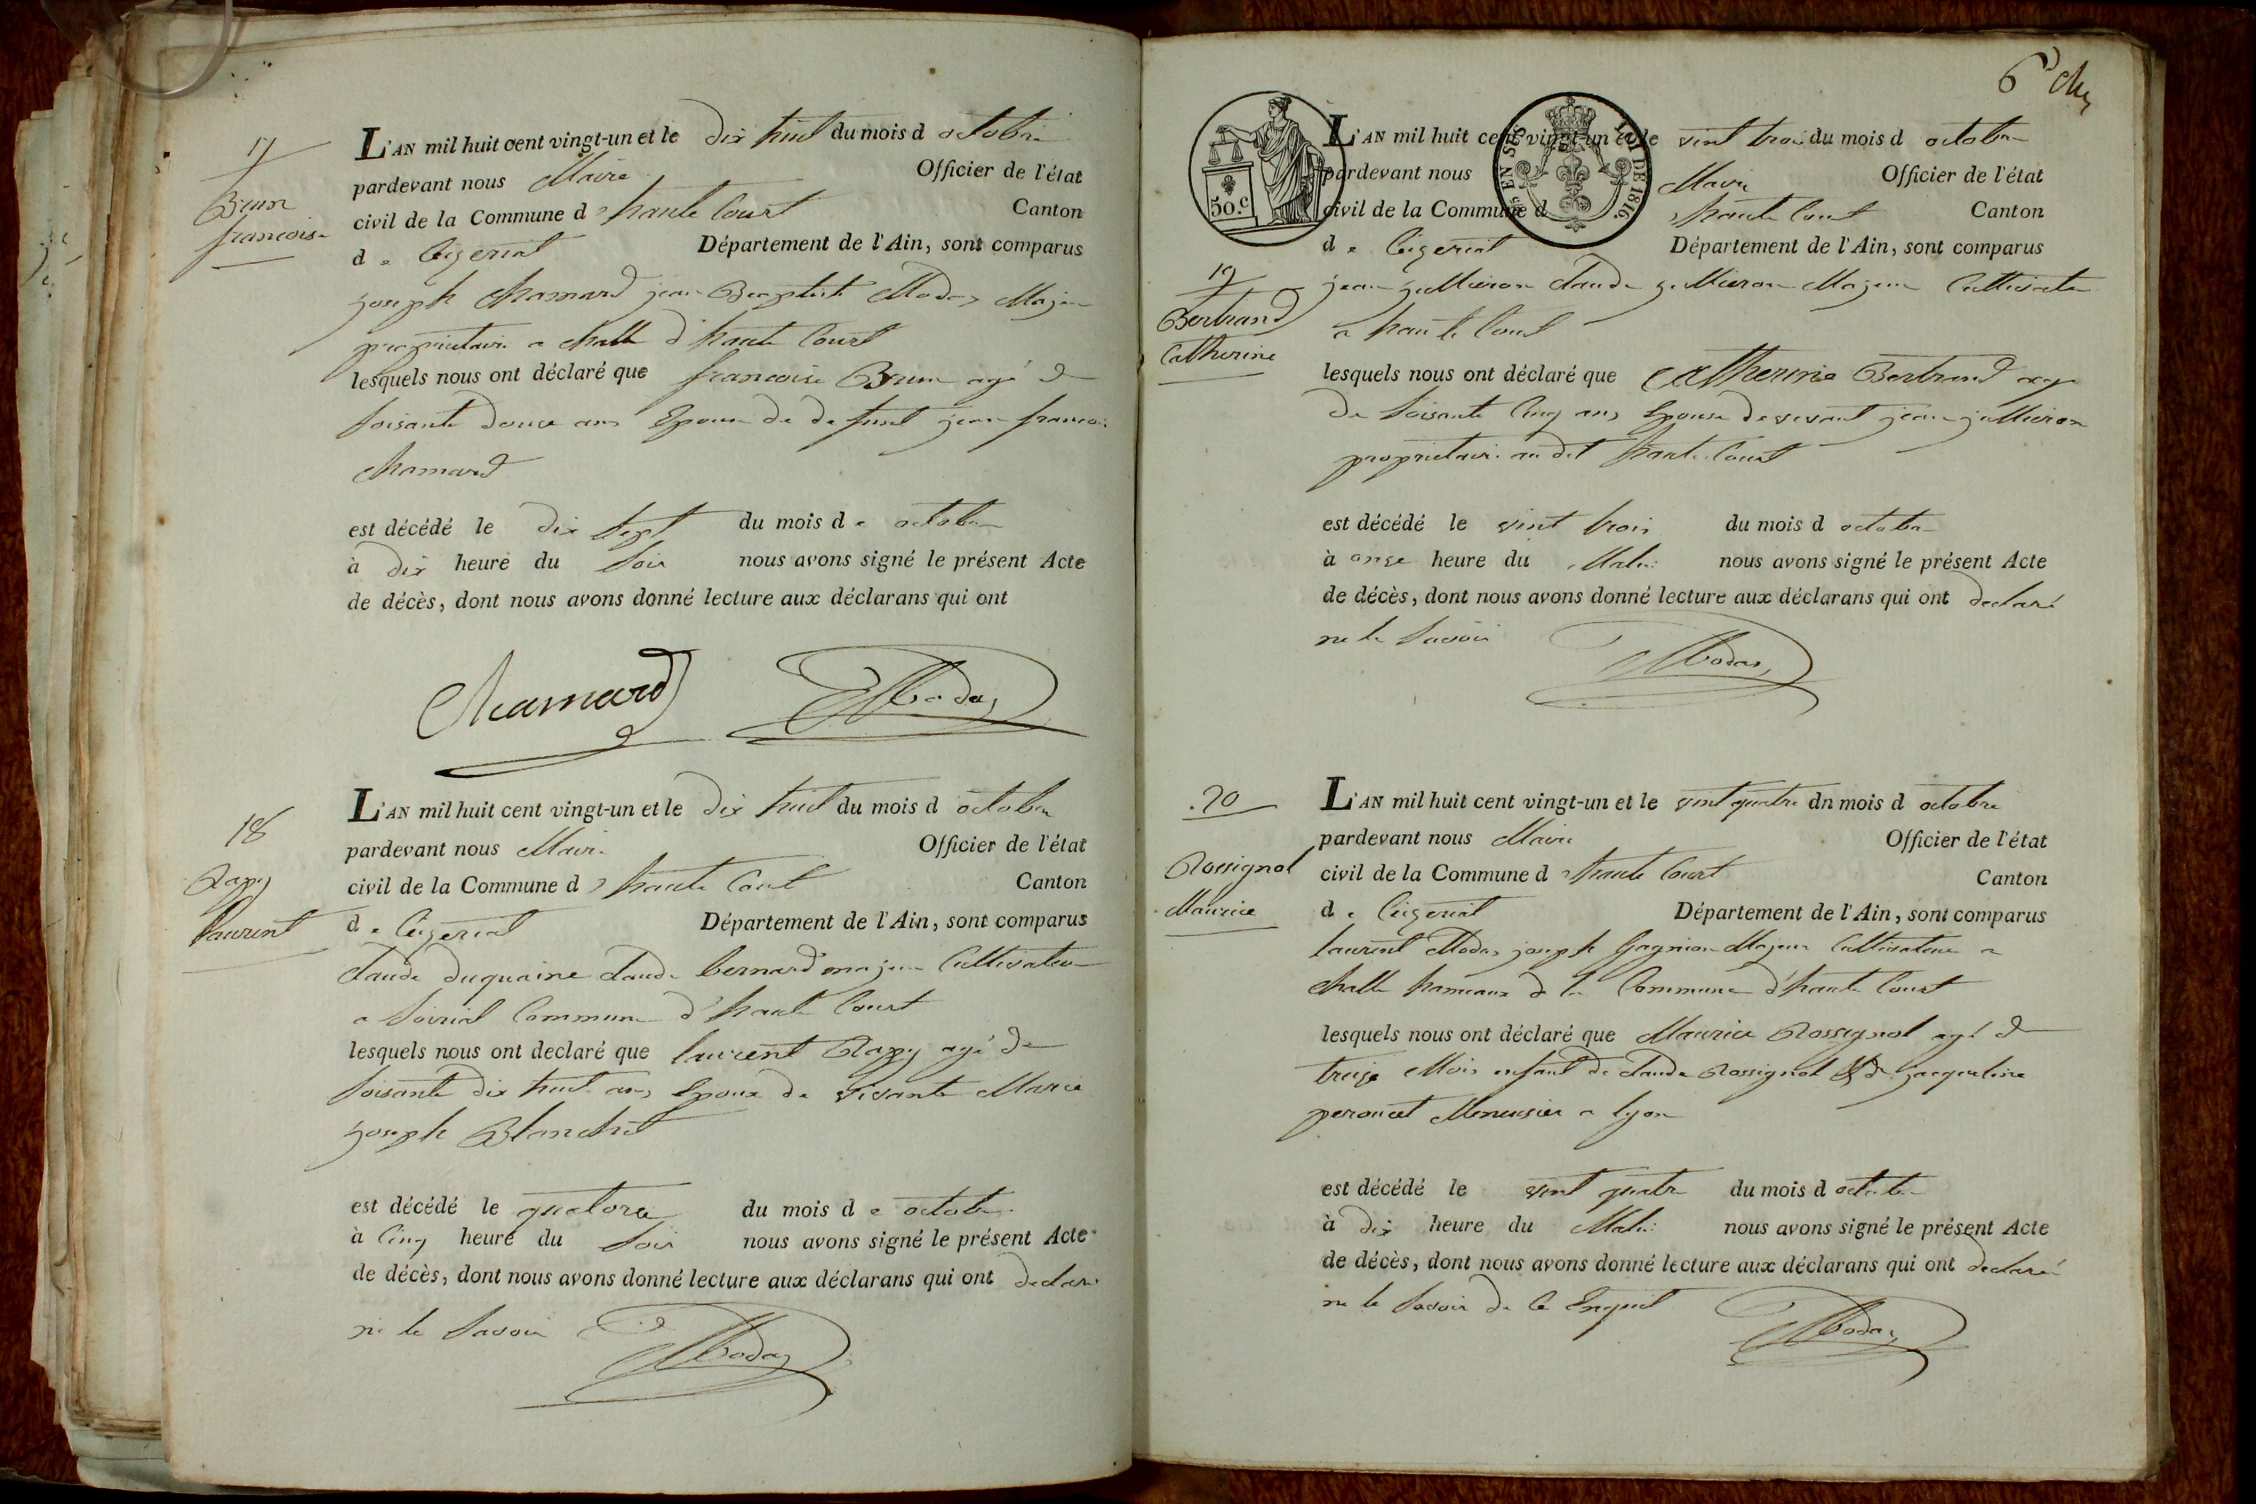 17
Brun
francoise
L'AN mil huit cent vingt-un et le dix huit du mois d octobre
pardevant nous Maire Officier de l'état
civil de la Commune d haute Court Canton
d e Ceizeriat Département de l'Ain, sont comparus
joseph Chamard jean Baptiste Modas Majeur
propriétaire a challe d'haute Court
lesquels nous ont déclaré que francoise Brun agé de
soisante douce ans Epouse de defunt jean francois
Chamard
est décédé le dix sept du mois d e octobre
à dix heure du soir nous avons signé le présent Acte
de décès, dont nous avons donné lecture aux déclarans qui ont
Chamard Modas
18
Rapy
laurent
L'AN mil huit cent vingt-un et le dix huit du mois d octobre
pardevant nous Maire Officier de l'état
civil de la Commune d haute Court Canton
d e Ceizeriat Département de l'Ain, sont comparus
Claude duquaine Claude bernard majeur Cultivateur
a Soiriat Commune d'haute Court
lesquels nous ont declaré que laurent Rapy agé de
soisante dix huit ans Epoux de vivante Marie
joseph Blanchet
est décédé le quatorze du mois d e octobre
à Cinq heure du soir nous avons signé le présent Acte
de décès, dont nous avons donné lecture aux déclarans qui ont declaré
ne le savoir Modas
6e
50.c
EN SUS
LOI DE 1816.
L'AN mil huit cent vingt-un et le vint trois du mois d octobre
pardevant nous Maire Officier de l'état
civil de la Commune d haute Court Canton
d e Ceizeriat Département de l'Ain, sont comparus
19
Bertrand
Catherine
jean jullieron Claude jullieron Majeur Cultivateur
a haute Court
lesquels nous ont déclaré que Catherine Bertrand agé
de soisante Cinq ans Epouse de vivant jean jullieron
propriétaire au dit haute Court
est décédé le vint trois du mois d octobre
à onze heure du Matin nous avons signé le présent Acte
de décès, dont nous avons donné lecture aux déclarans qui ont declaré
ne le savoir Modas
20
Rossignol
Maurice
L'AN mil huit cent vingt-un et le vint quatre dn mois d octobre
pardevant nous Maire Officier de l'état
civil de la Commune d haute Court Canton
d e Ceizeriat Département de l'Ain, sont comparus
laurent Modas joseph Gagnion Majeur Cultivateur a
challe hameaux de la Commune d'haute Court
lesquels nous ont déclaré que Maurice Rossignol agé de
treize Mois enfant de Claude Rossignol & de jacqueline
peroncet Menusier a lyon
est décédé le vint quatre du mois d octobre
à dix heure du Matin nous avons signé le présent Acte
de décès, dont nous avons donné lecture aux déclarans qui ont declaré
ne le savoir de ce Enquit Modas